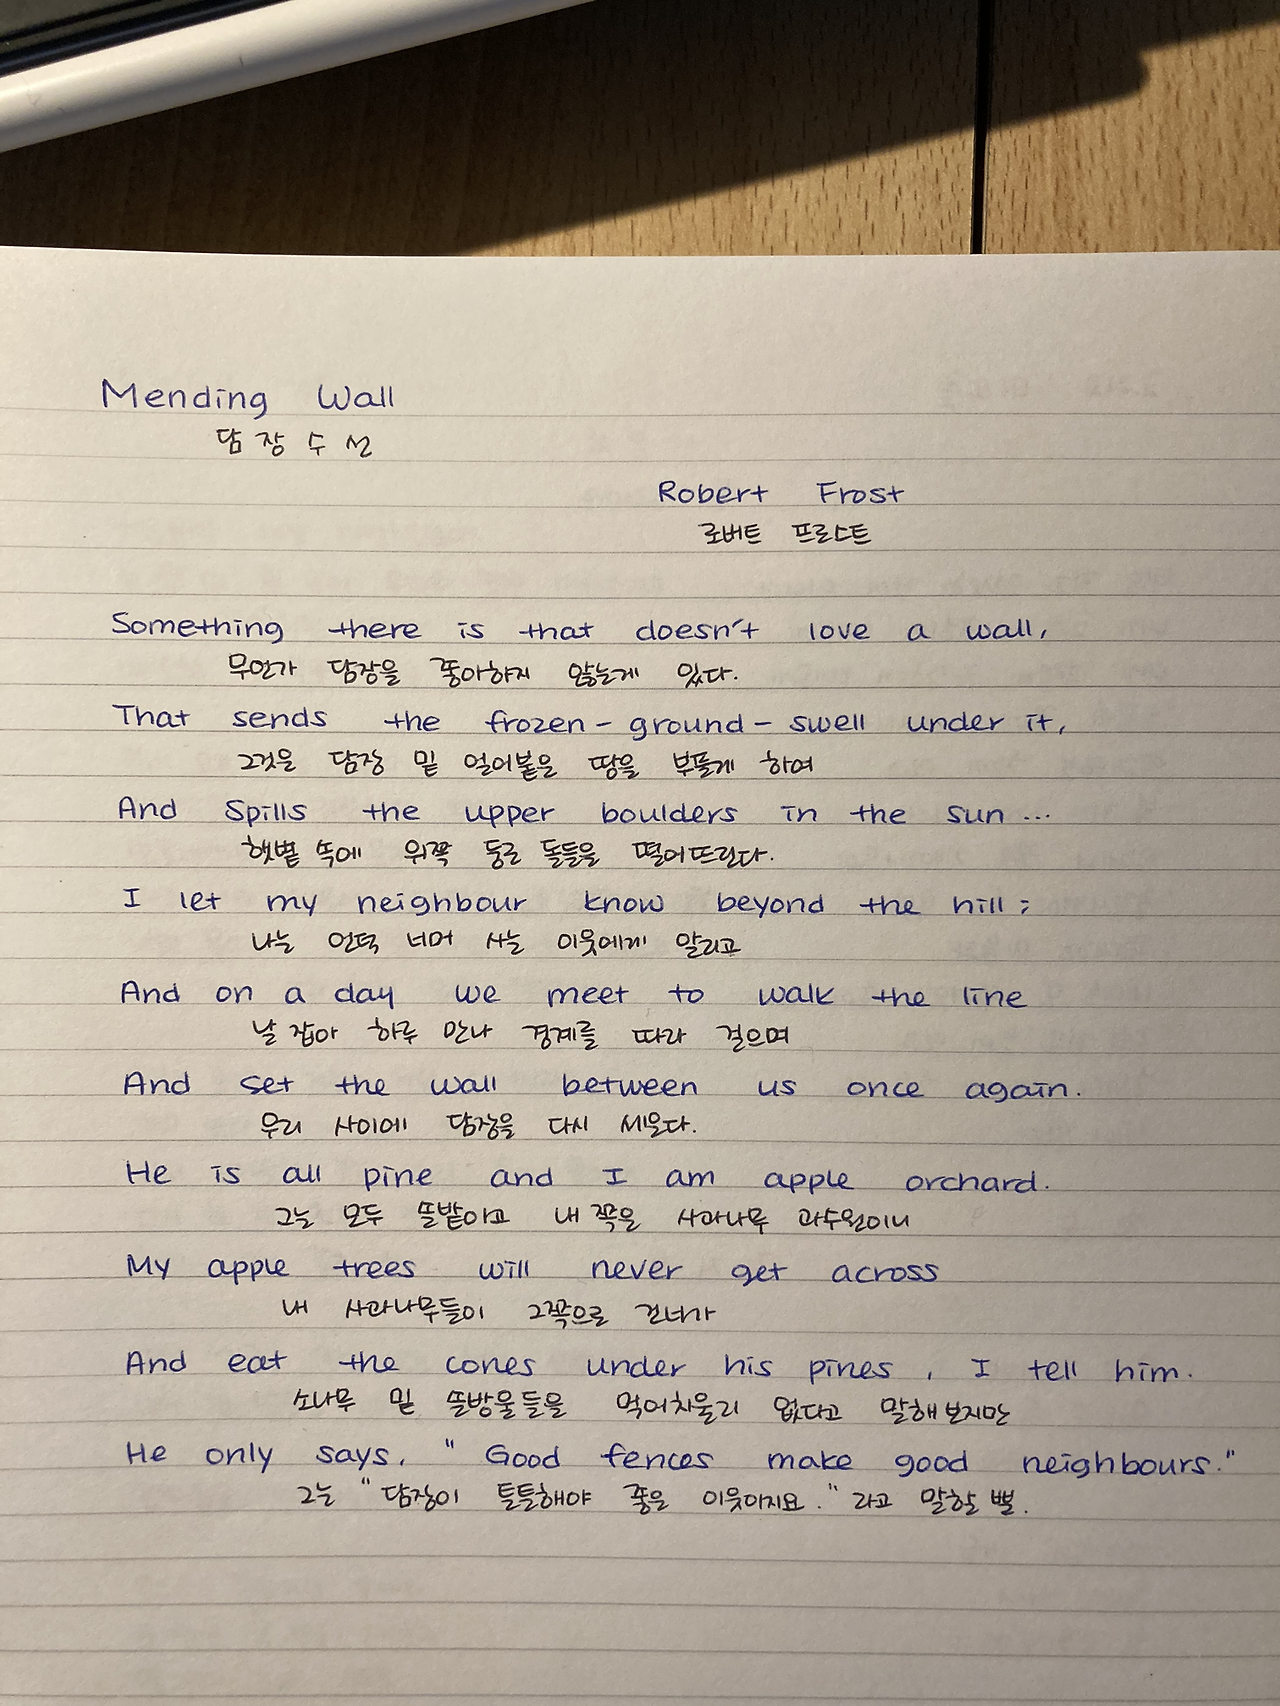 Mending Wall
담장 수선
Robert Frost
로버트 프로스트
Something there is that doesn't love a wall,
무언가 담장을 좋아하지 않는게 있다.
That sends the frozen-ground-swell under it,
그것은 담장 밑 얼어붙은 땅을 부풀게 하여
And spills the upper boulders in the sun...
햇볕 쏙에 위쪽 둥근 돌들을 떨어뜨린다.
I let my neighbour know beyond the hill;
나는 언덕 너머 사는 이웃에게 알리고
And on a day we meet to walk the line
날 잡아 하루 만나 경계를 따라 걸으며
And set the wall between us once again.
우리 사이에 담장을 다시 세운다.
He is all pine and I am apple orchard.
그는 모두 뜰밭이고 내 쪽은 사과나무 과수원이니
My apple trees will never get across
내 사과나무들이 그쪽으로 건너가
And eat the cones under his pines, I tell him.
소나무 밑 솔방울들을 먹어치울리 없다고 말해 보지만
He only says, "Good fences make good neighbours."
그는 "담장이 튼튼해야 좋은 이웃이지요." 라고 말할 뿐.